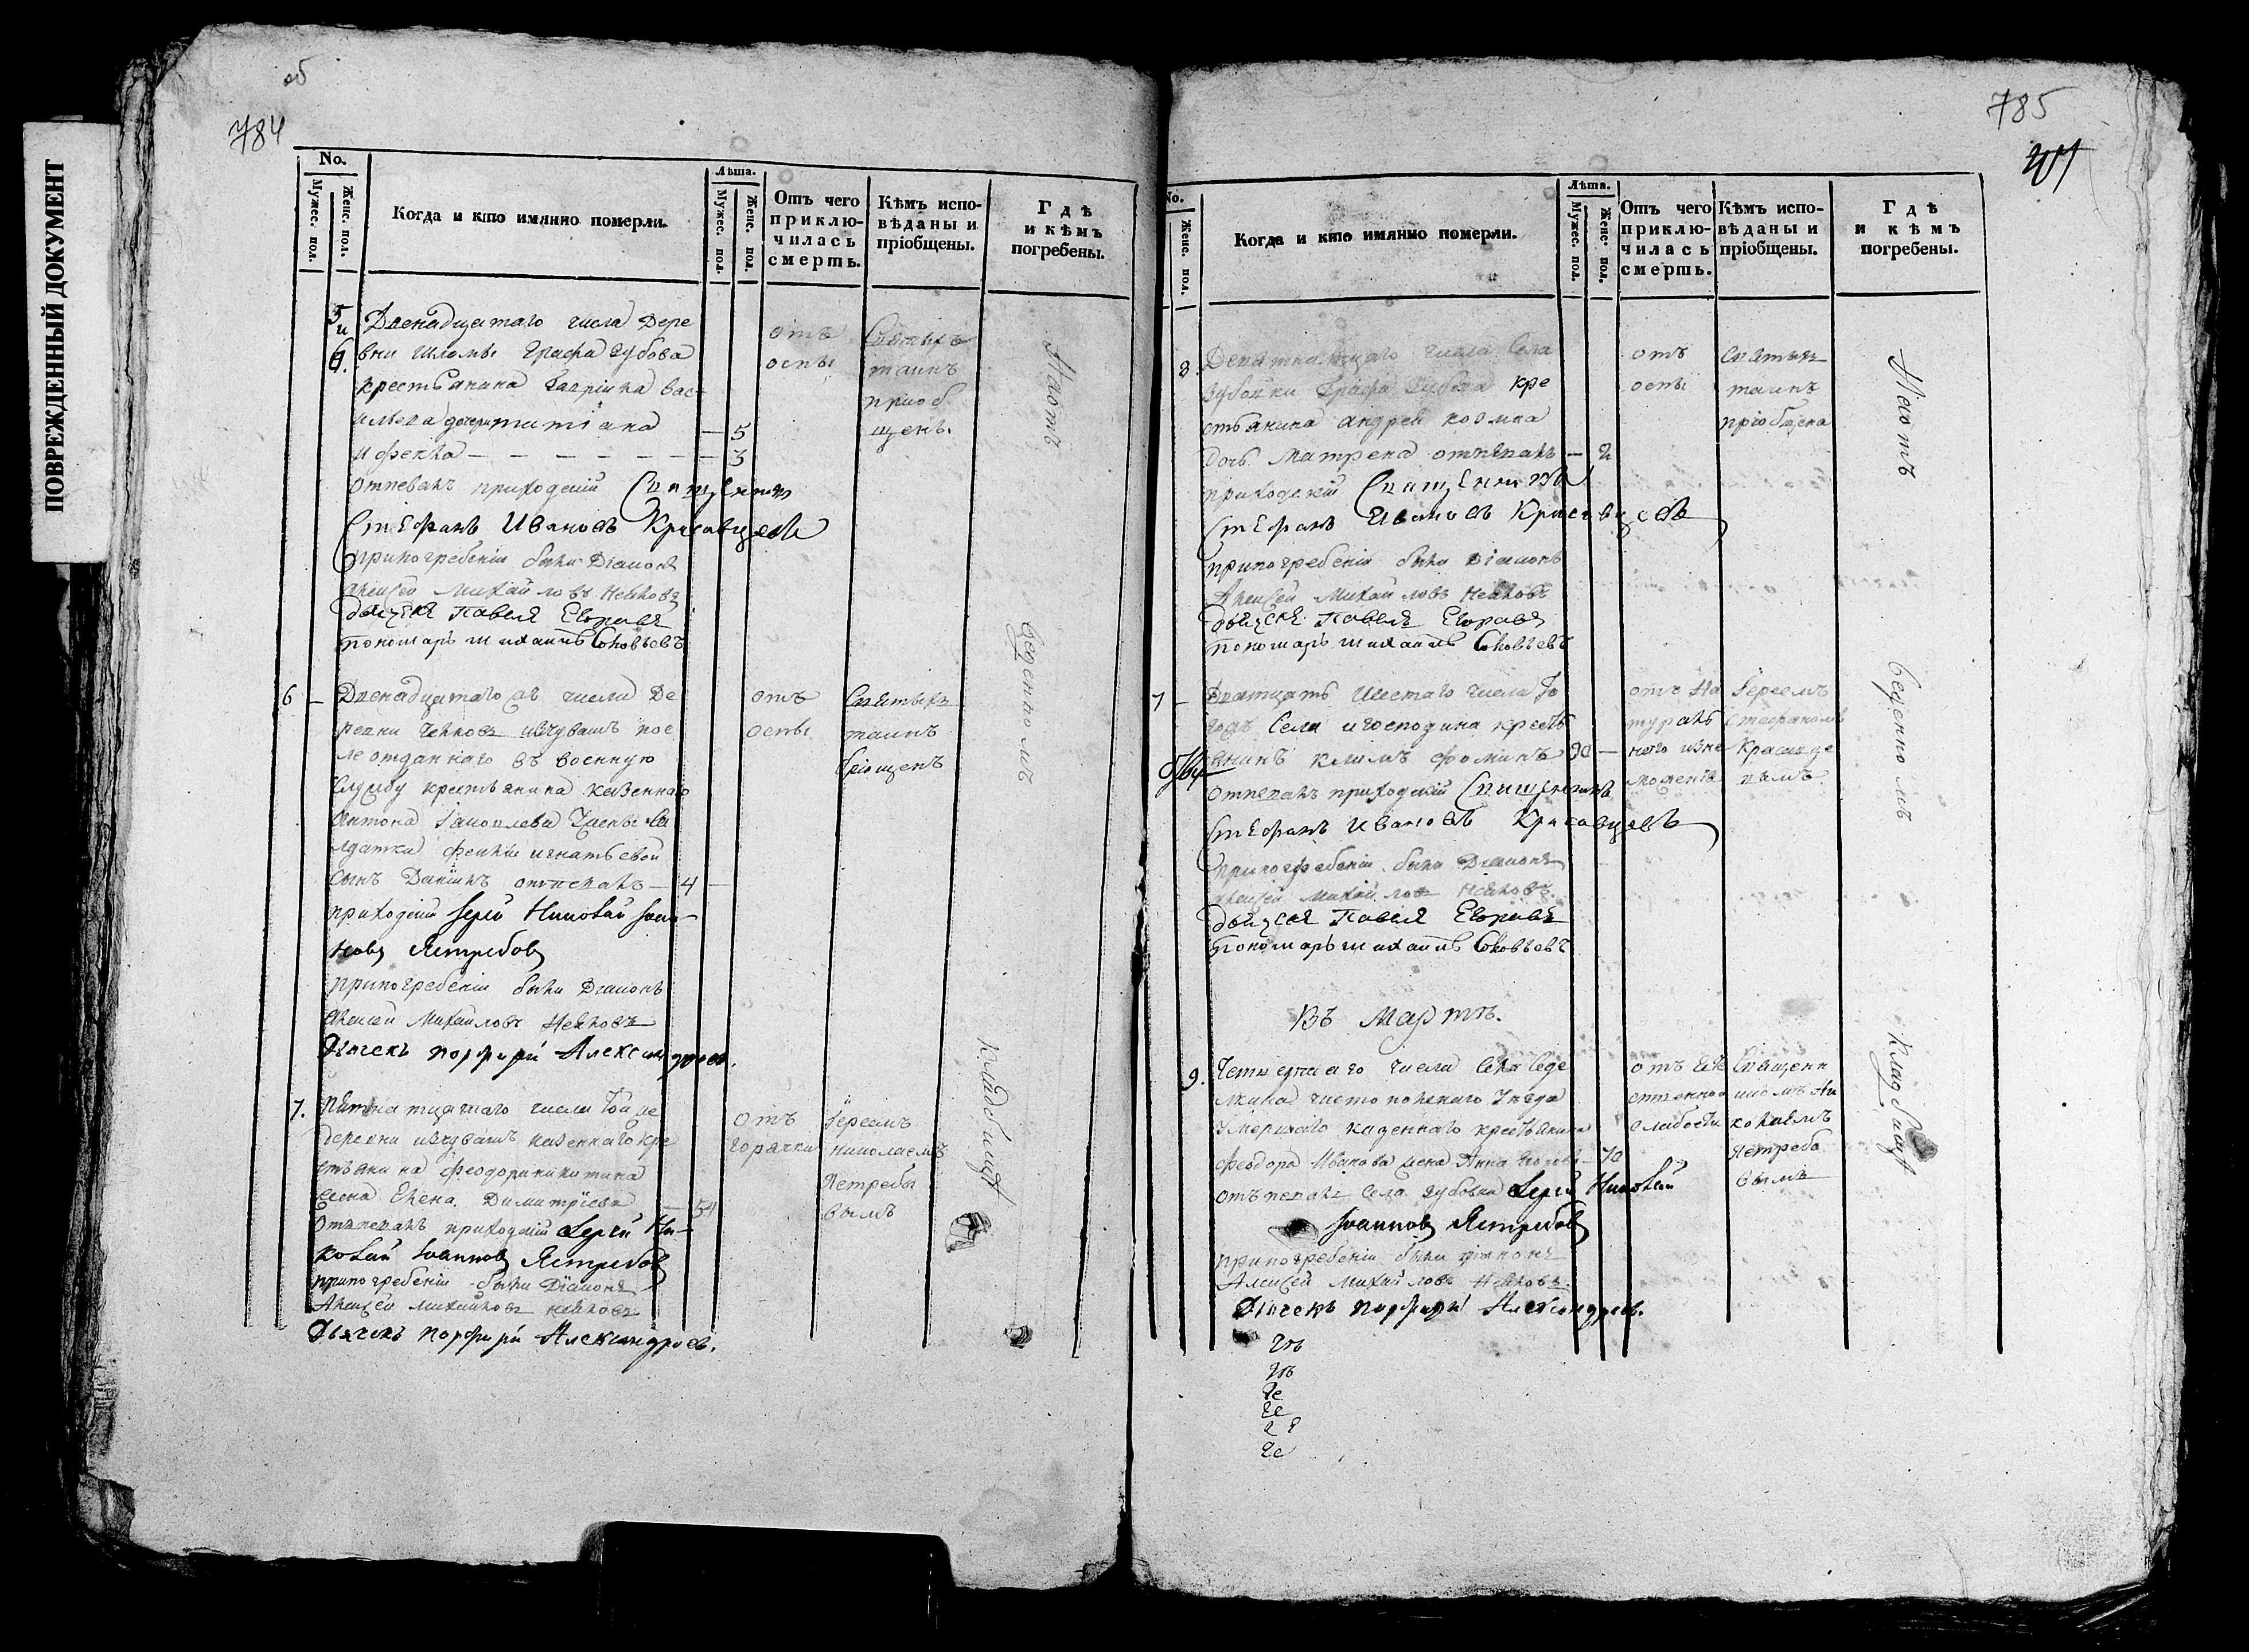 ПОВРЕЖДЕННЫЙ ДОКУМЕНТ
об
784
No.
Мужес. пол.
Женс. пол.
Когда и кто имянно померли.
Лѣта.
Мужес. пол.
Женс. пол.
Отъ чего приклю-
чилась
смерть.
Кѣмъ испо-
вѣданы и
пріобщены.
Гдѣ
и кѣмъ
погребены.
5 и 6.
Двенадцатаго числа Дере
вни Шломы Графа Зубова
крестьянина Гаврiила Вас
ильева дочери татiана — 5
и фекла — 3
отпевалъ приходскiй Священникъ
Стефанъ Ивановъ Красавцевъ
при погребенiи были Дiаконъ
Алексей Михайловъ
дьячекъ Павелъ Егоровъ
пономарь михаилъ Соловьевъ
отъ
оспы
Святыхъ
таинъ
приоб
щены.
6 —
Двенадцатаго числа Де
ревни изчувашъ пос
ле отданнаго въ военную
службу крестьянина казеннаго
Антона жены Са
лдатки феклы игнатьевой
сынъ Данiилъ отпевалъ — 4 —
приходскiй Iерей Николай Iоан-
новъ Ястребовъ
при погребенiи были Дiаконъ
Алексей Михайловъ
Дьячекъ порфирй Александровъ.
отъ
оспы
Святыхъ
таинъ
7.
Пятнатцатаго числа Той же
деревни изчувашъ казеннаго кре
стьянина феодора никитина
жена Елена Димитрiева — 54
Отпевалъ приходскiй Iерей Ни-
колай Iоанновъ Ястребовъ
при погребенiи были Дiаконъ
Алексей михайловъ
Дьячекъ порфирй Александровъ.
отъ
горячки
Iереемъ
николаемъ
Ястребо
вымъ
На отъ
веденномъ
кладбищѣ
785
No.
Женс. пол.
Когда и кто имянно померли.
Лѣта.
Мужес. пол.
Женс. пол.
Отъ чего
приклю-
чилась
смерть.
Кѣмъ испо-
вѣданы и
пріобщены.
Гдѣ
и кѣмъ
погребены.
8
Девятнатцаго числа Села
Зубовки Графа Зубова кре
стьянина андрея козмина
дочь Матрена отпевалъ — 2
приходскiй Священникъ
Стефанъ Ивановъ Красавцевъ
при погребенiи были Дiаконъ
Алексей Михайловъ
дьячекъ Павелъ Егоровъ
пономарь михаилъ Соловьевъ
отъ
оспы
Святыхъ
таинъ
прiобщена
7 —
Дватцать Шестаго числа То
гожъ Села и господина кресть
янинъ климъ фоминъ 90 —
отпевалъ приходскiй Священникъ
Стефанъ Ивановъ Красавцевъ
при погребенiи были Дiаконъ
Алексей Михайловъ
дьячекъ Павелъ Егоровъ
пономарь михаилъ Соловьевъ
отъ На
тураль
наго изне
можения
Iереемъ
Стефаномъ
Красавце
вымъ
Въ Мартѣ.
9.
числа Села Беде
чистопольскаго Уезда
Умершаго казеннаго крестьянина
феодора Иванова жена Анна — 70
отъпевалъ Села Зубовки Iерей Николай
Iоанновъ Ястребовъ
при погребенiи были дiяконъ
Алексей михайловъ
Дьячекъ порфирй Александровъ.
отъ Есте
ственной
слабости
Священн
икомъ Ни
колаемъ
Ястребо
вымъ
На отъ
веденномъ
кладбищѣ